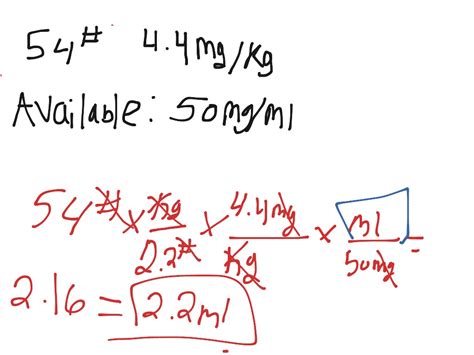 54# 4.4mg/kg
Available: 50mg/ml
54# x kg/2.2# x 4.4mg/kg x ml/50mg =
2.16 = 2.2ml